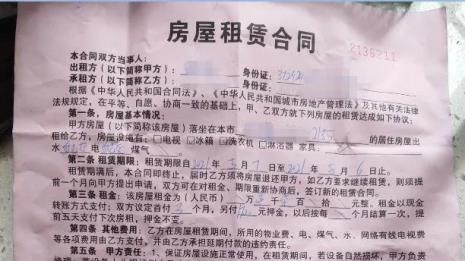 房屋租赁合同
2136211
本合同双方当事人：
出租方（以下简称甲方） 身份证：
承租方（以下简称乙方） 身份证：
根据《中华人民共和国合同法》、《中华人民共和国城市房地产管理法》及其他有关法律
法规规定，在平等、自愿、协商一致的基础上，甲、乙双方就下列房屋的租赁达成如下协议：
第一条，房屋基本情况：
甲方房屋（以下简称该房屋）落坐在本市 的居住房屋出
租给乙方，房屋设备有：□电视 □冰箱 □洗衣机 □淋浴器 家具：
水 电 煤气
第二条 租赁期限：租赁期限自2021年5月7日 2021年8月6日止。
租赁期满后，本合同即终止，届时乙方须将房屋退还甲方，如乙方要求继续租赁，则须提
前一个月向甲方提出申请，双方可在对租金、期限重新协商后，签订新的租赁合同。
第三条 租金：该房屋租金为（人民币） 万 千 百 拾 元整，租金以现金
转账方式支付；乙方设定首付 个月，另付 元押金，以后按每 个月结算一次，提
前五天支付下次房租，押金不变。
第四条 其他费用：乙方在房屋租赁期间，所用的物业费、电、煤气、水、网络有线电视费
等各项费用由乙方支付，并由乙方承担延期付款的违约责任。
第五条 甲方责任：1、保证房屋设施正常使用，在租赁期间，若设备自然损坏，甲方负责